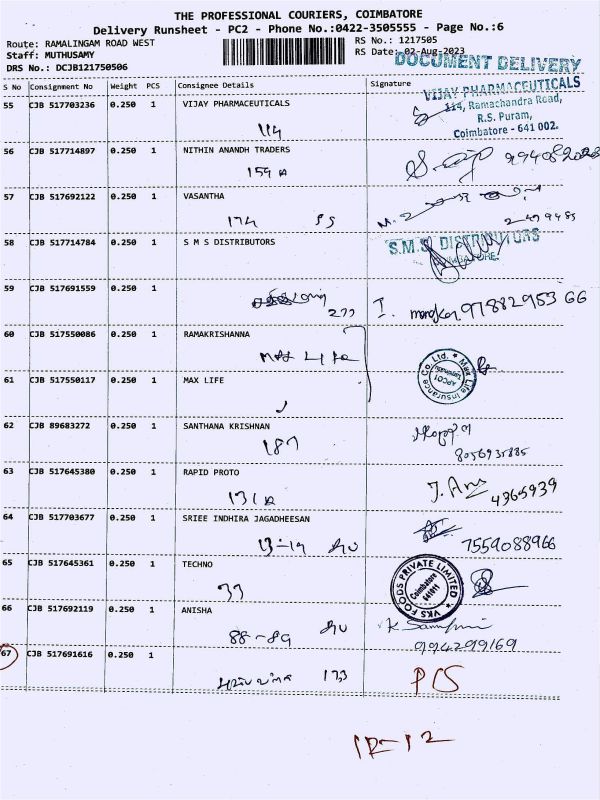 THE PROFESSIONAL COURIERS, COIMBATORE
Delivery Runsheet - PC2 - Phone No.:0422-3505555 - Page No.:6
Route: RAMALINGAM ROAD WEST
RS No.: 1217505
Staff: MUTHUSAMY
RS Date: 02-Aug-2023
DRS No.: DCJB121750506
DOCUMENT DELIVERY
S No Consignment No Weight PCS Consignee Details Signature
55 CJB 517703236 0.250 1 VIJAY PHARMACEUTICALS
114
VIJAY PHARMACEUTICALS
114, Ramachandra Road,
R.S. Puram,
Coimbatore - 641 002.
56 CJB 517714897 0.250 1 NITHIN ANANDH TRADERS
159 A
57 CJB 517692122 0.250 1 VASANTHA
174
58 CJB 517714784 0.250 1 S M S DISTRIBUTORS
S.M.S. DISTRIBUTORS
59 CJB 517691559 0.250 1
277
I. 97882953 66
60 CJB 517550086 0.250 1 RAMAKRISHANNA
Max Life
Max Life Insurance Co. Ltd.
61 CJB 517550117 0.250 1 MAX LIFE
62 CJB 89683272 0.250 1 SANTHANA KRISHNAN
187
8056935885
63 CJB 517645380 0.250 1 RAPID PROTO
131 A
4365939
64 CJB 517703677 0.250 1 SRIEE INDHIRA JAGADHEESAN
13-14
7559088966
65 CJB 517645361 0.250 1 TECHNO
33
VKS FOODS PRIVATE LIMITED
Coimbatore
641011
66 CJB 517692119 0.250 1 ANISHA
88-89
9994299169
67 CJB 517691616 0.250 1
173
PCS
12-12